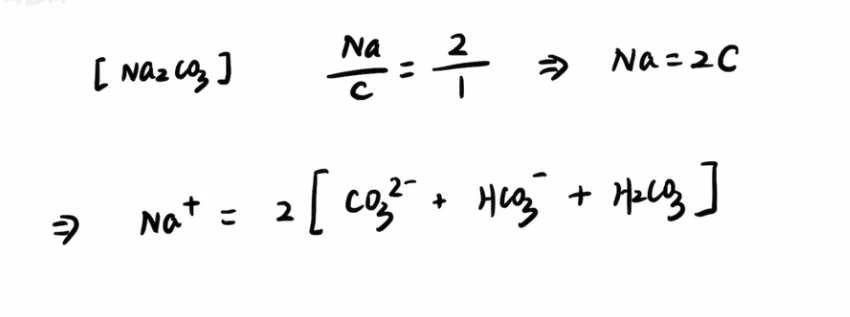 [Na₂CO₃] Na/C = 2/1 ⇒ Na = 2C
⇒ Na⁺ = 2[CO₃²⁻ + HCO₃⁻ + H₂CO₃]